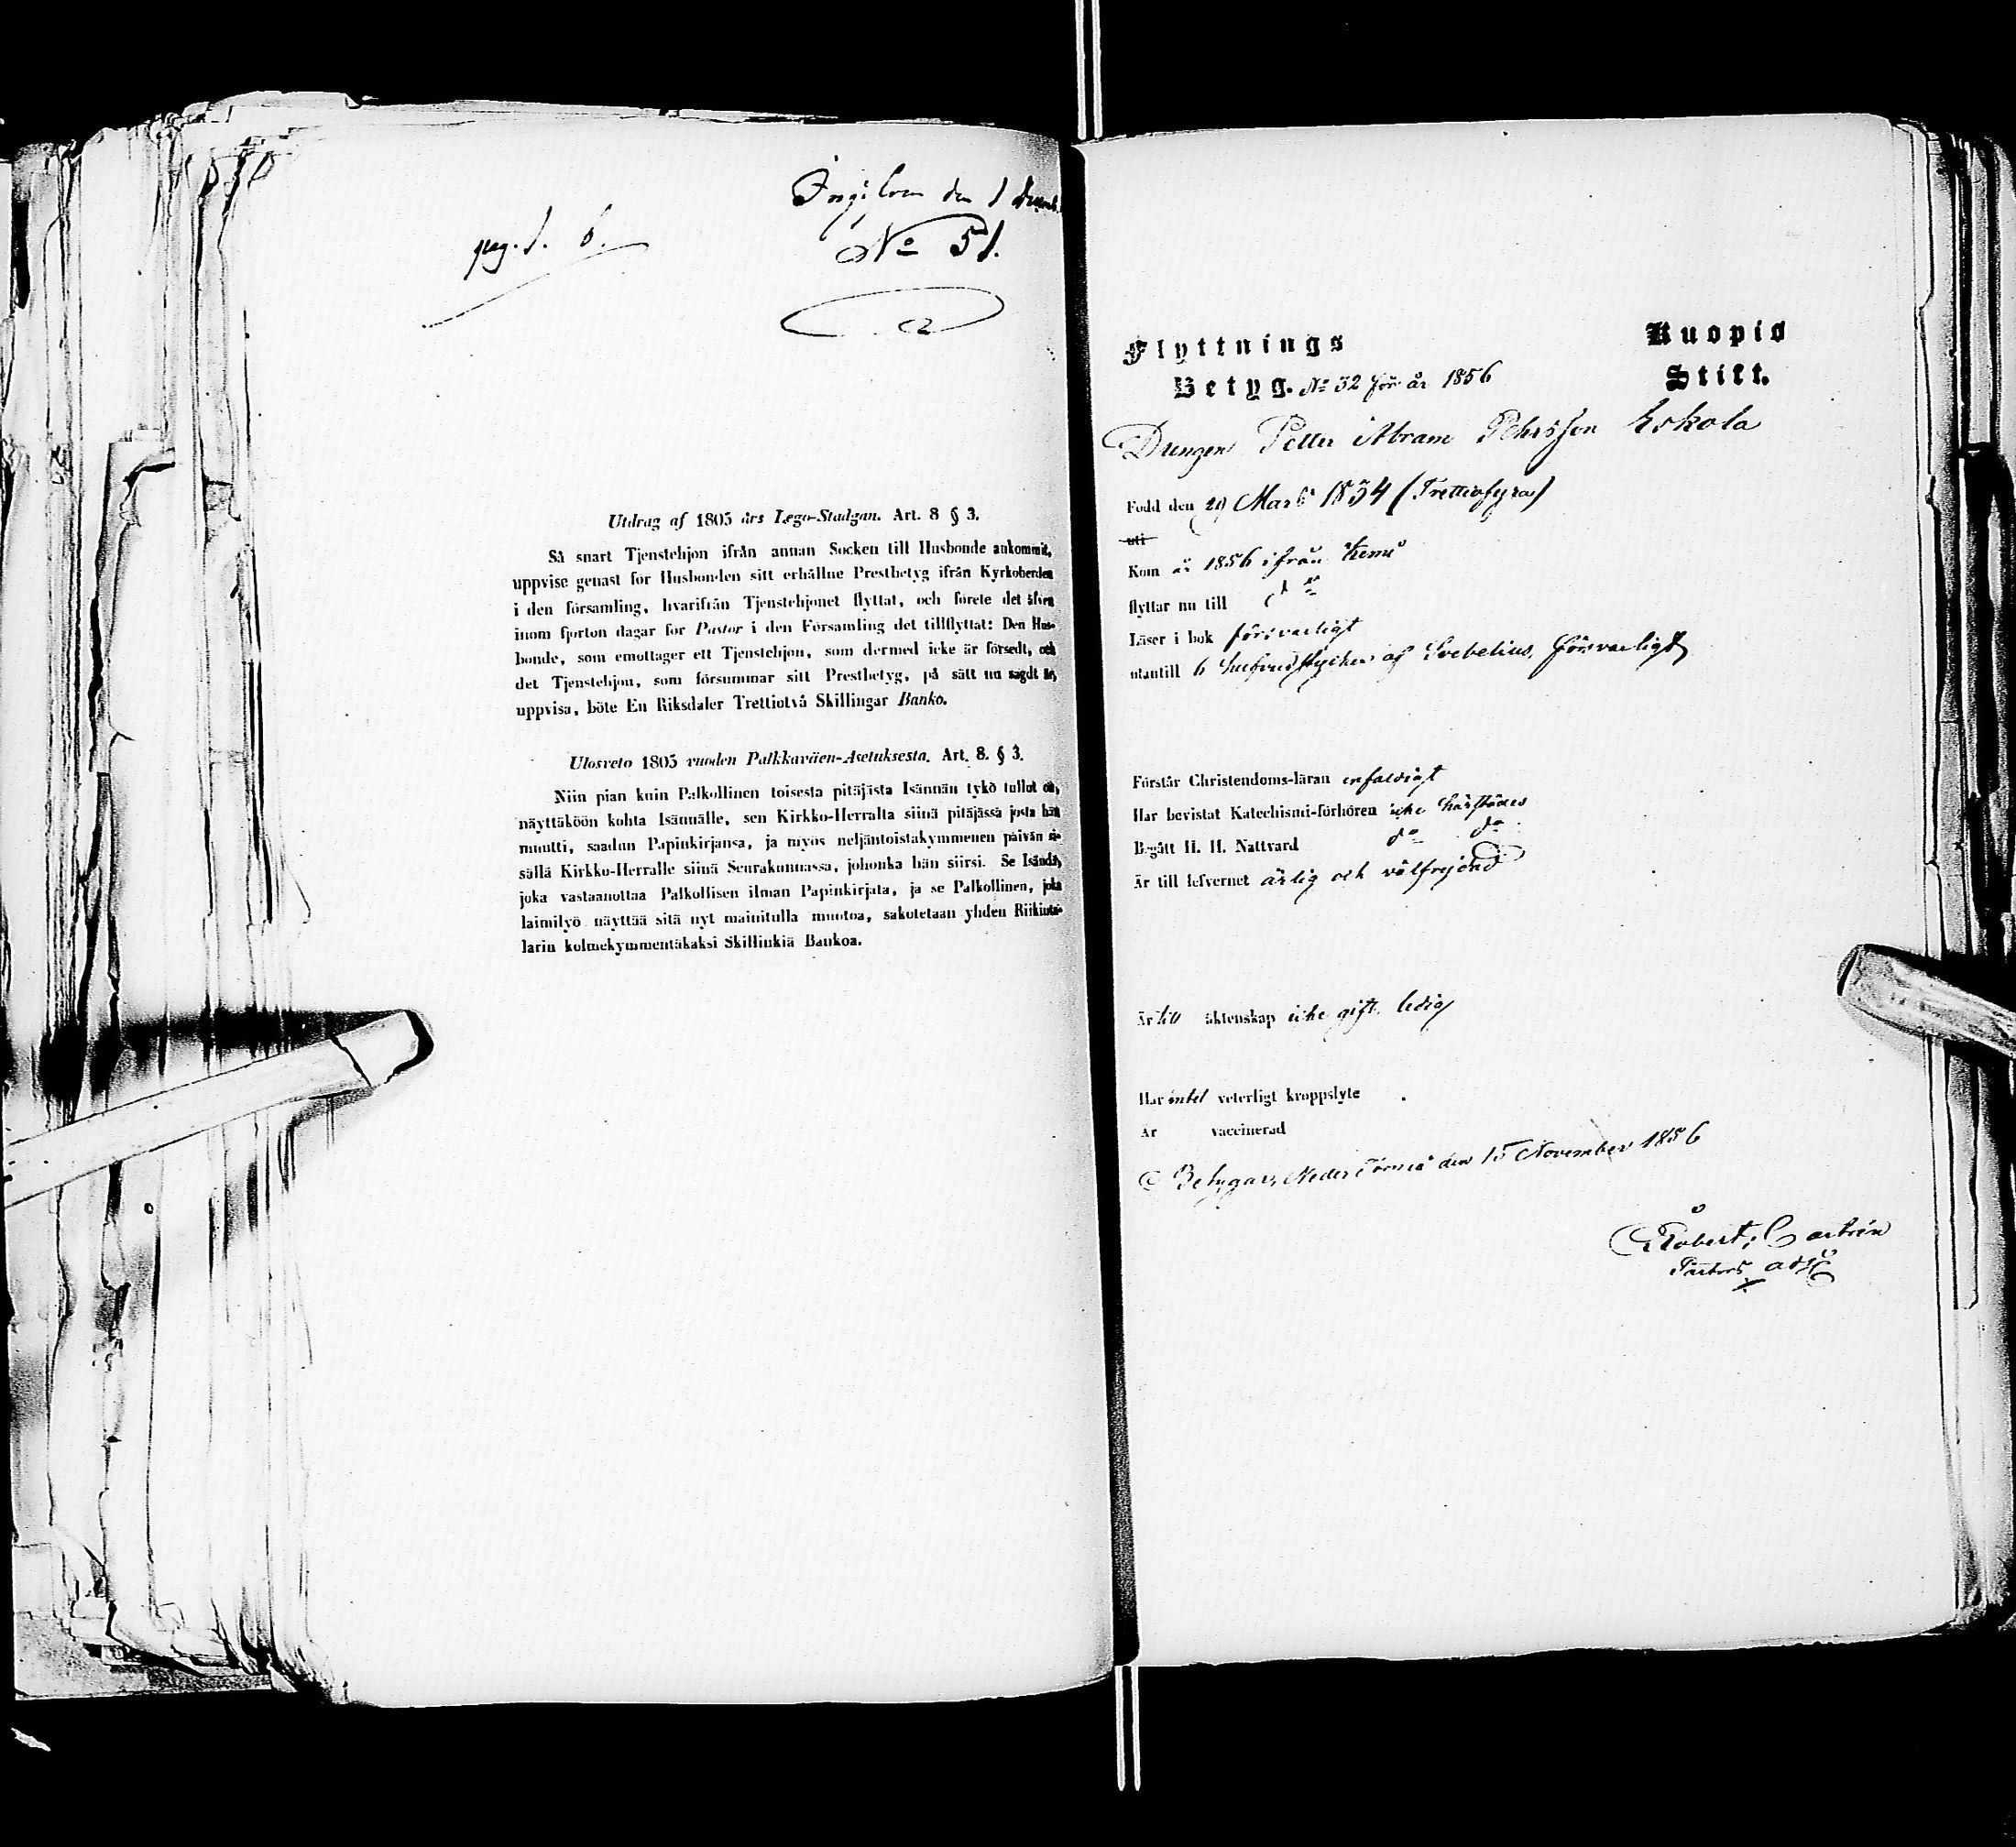 Ingifven den 1 Decemb.
pag. 1. 6.
No 51.
Utdrag af 1805 års Lego-Stadgan. Art. 8 § 3.
Så snart Tjenstehjon ifrån annan Socken till Husbonde ankommit,
uppvise genast för Husbonden sitt erhållne Prestbetyg ifrån Kyrkoherden
i den församling, hvarifrån Tjenstehjonet flyttat, och förete det äfven
inom fjorton dagar för Pastor i den Församling det tillflyttat: Den Hus-
bonde, som emottager ett Tjenstehjon, som dermed icke är försedt, och
det Tjenstehjon, som försummar sitt Prestbetyg, på sätt nu sagdt är,
uppvisa, böte En Riksdaler Trettiotvå Skillingar Banko.
Ulosveto 1805 vuoden Palkkaväen-Asetuksesta. Art. 8. § 3.
Niin pian kuin Palkollinen toisesta pitäjästa Isännän tykö tullut on,
näyttäköön kohta Isännälle, sen Kirkko-Herralta siinä pitäjässä josta hän
muutti, saadun Papinkirjansa, ja myös neljäntoistakymmenen päivän si-
sällä Kirkko-Herralle siinä Seurakunnassa, johonka hän siirsi. Se Isändä,
joka vastaanottaa Palkollisen ilman Papinkirjata, ja se Palkollinen, joka
laimilyö näyttää sitä nyt mainitulla muotoa, sakotetaan yhden Riikinta-
larin kolmekymmentäkaksi Skillinkiä Bankoa.
Flyttnings Kuopio
Betyg. No 32 för år 1856 Stift.
Drengen Petter Abram Pehrsson Eskola
Född den 29 Marti 1834 (Trettiofyra)
uti
Kom år 1856 ifrån Kemi
flyttar nu till do
Läser i bok försvarligt
utantill 6 hufvudstycken af Svebelius, försvarligt
Förstår Christendoms-läran enfaldigt
Har bevistat Katechismi-förhören icke härstädes
Begått H. H. Nattvard do do
Är till lefvernet ärlig och välfrejdad
Är till äktenskap icke gift, ledig
Har intet veterligt kroppslyte
Är vaccinerad
Betygar, Neder Torneå den 15 November 1856
Robert Castrén
Pastors adj.